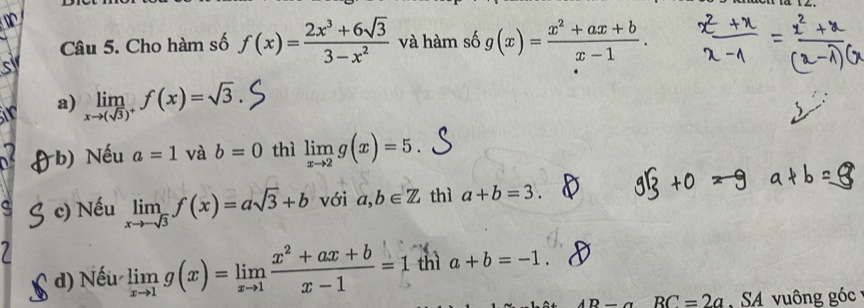 Câu 5. Cho hàm số f(x) = \frac{2x^3 + 6\sqrt{3}}{3 - x^2} và hàm số g(x) = \frac{x^2 + ax + b}{x - 1} . \frac{x^2 + x}{x - 1} = \frac{x^2 + x}{(x - 1)(x
a) \lim_{x \to (\sqrt{3})^+} f(x) = \sqrt{3} . S
b) Nếu a = 1 và b = 0 thì \lim_{x \to 2} g(x) = 5 . S
S c) Nếu \lim_{x \to -\sqrt{3}} f(x) = a\sqrt{3} + b với a, b ∈ ℤ thì a + b = 3 . Đ 9\sqrt{3} + 0 = 9 a + b =
S d) Nếu \lim_{x \to 1} g(x) = \lim_{x \to 1} \frac{x^2 + ax + b}{x - 1} = 1 thì a + b = -1 . Đ
BC = 2a , SA vuông góc